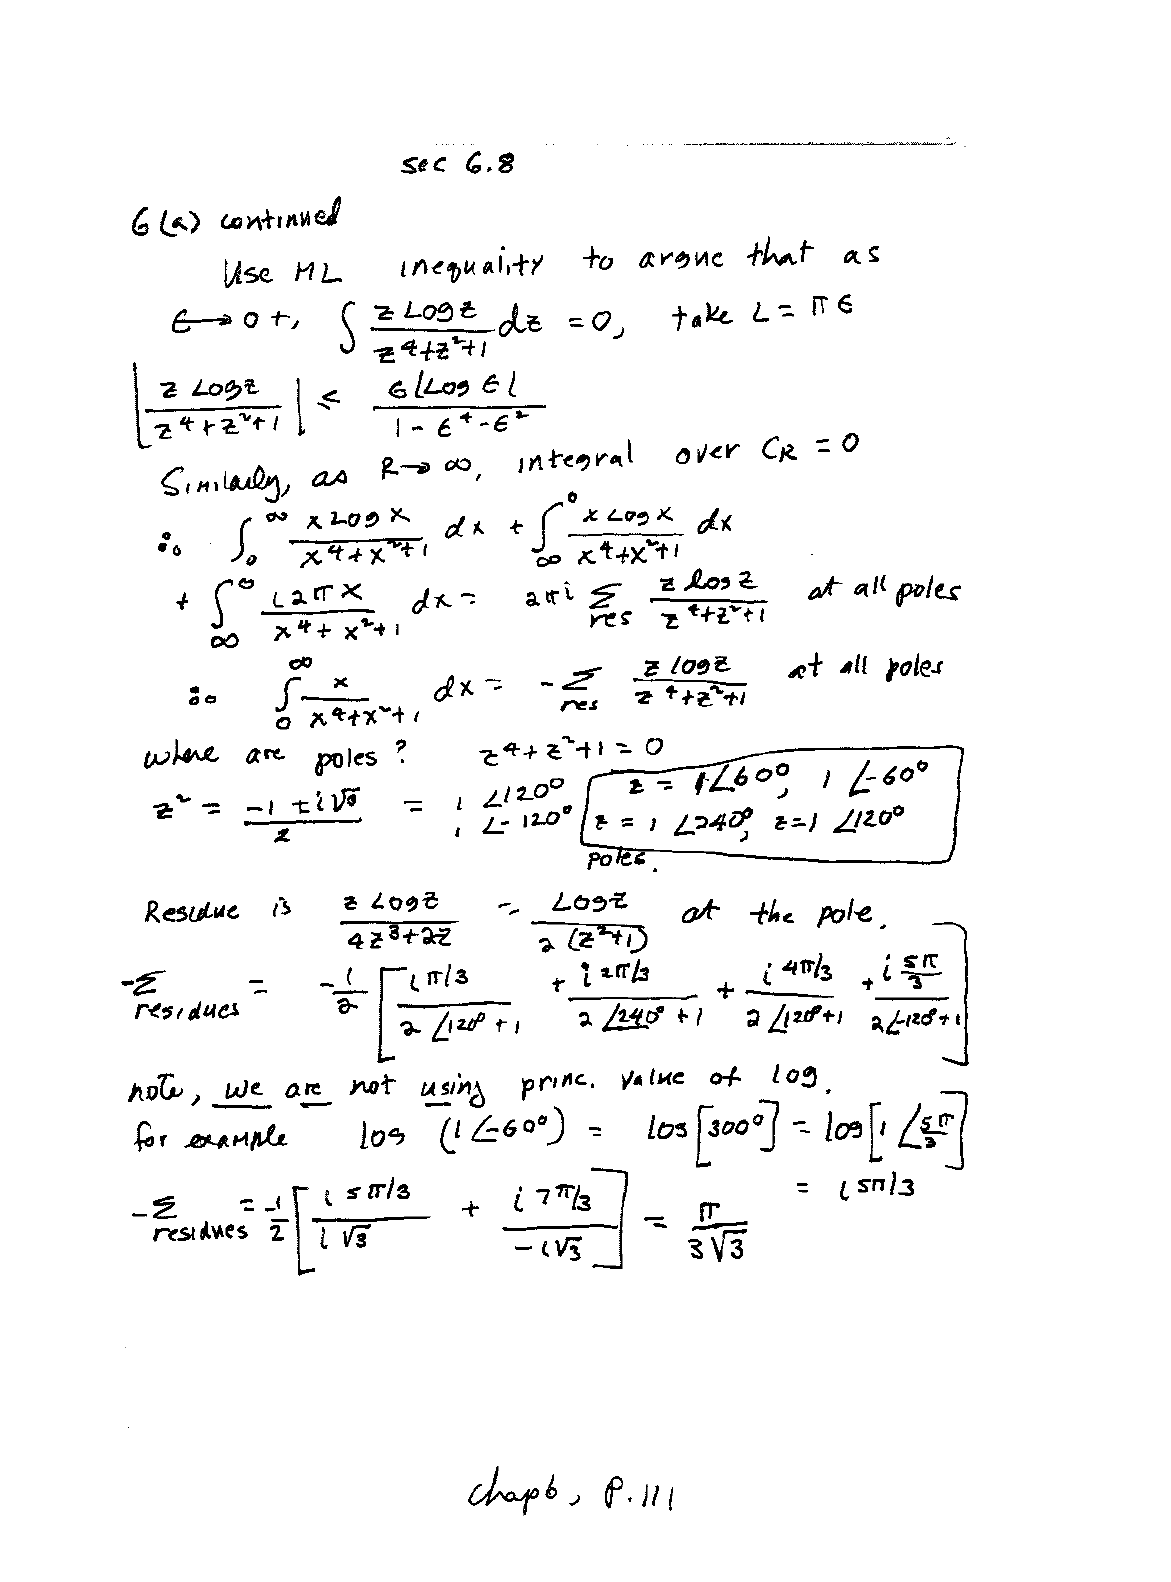 sec 6.8
6(a) continued
Use ML inequality to argue that as
ϵ→0+, ∫ z Log z / (z^4+z^2+1) dz = 0, take L = πϵ
|z Log z / (z^4+z^2+1)| ≤ ϵ|Log ϵ| / (1-ϵ^4-ϵ^2)
Similarly, as R→∞, integral over C_R = 0
∴ ∫_0^∞ x Log x / (x^4+x^2+1) dx + ∫_∞^0 x Log x / (x^4+x^2+1) dx
+ ∫_∞^0 i2πx / (x^4+x^2+1) dx = 2πi Σ_res z log z / (z^4+z^2+1) at all poles
∴ ∫_0^∞ x / (x^4+x^2+1) dx = -Σ_res z log z / (z^4+z^2+1) at all poles
where are poles? z^4+z^2+1=0
z^2 = (-1 ± i√3) / 2 = 1 ∠120° z = 1∠60°, 1 ∠-60°
1 ∠-120° z = 1 ∠240°, z=1 ∠120°
poles.
Residue is z Log z / (4z^3+2z) = Log z / (2(z^2+1)) at the pole.
-Σ residues = -1/2 [ (iπ/3) / (2∠120°+1) + (i2π/3) / (2∠240°+1) + (i4π/3) / (2∠120°+1) + (i5π/3) / (2∠-120°+1) ]
note, we are not using princ. value of log.
for example log (1∠-60°) = log [300°] = log [1∠5π/3]
= i5π/3
-Σ residues = -1/2 [ (i5π/3) / (i√3) + (i7π/3) / (-i√3) ] = π / (3√3)
chap6, P.111